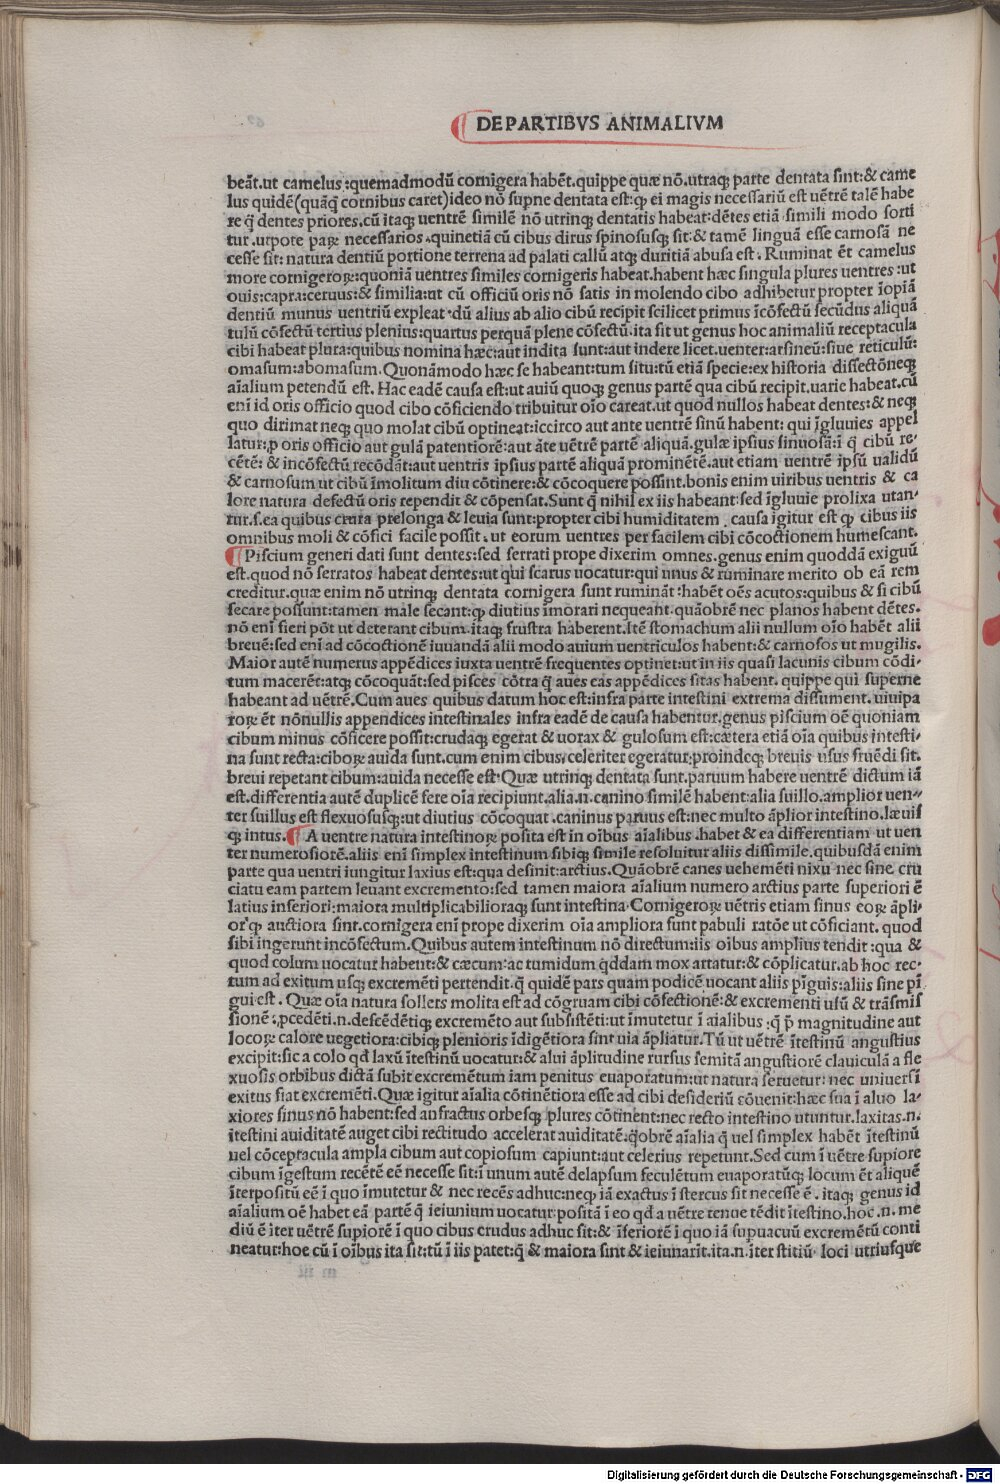 DE PARTIBVS ANIMALIVM
beāt.ut camelus:quemadmodū cornigera habēt.quippe quæ nō.utraqꝫ parte dentata sint:& came
lus quidē(quāq̄ cornibus caret)ideo nō supne dentata est:ꝙ ei magis necessariū est uētrē talē habe
re q̄ dentes priores.cū itaqꝫ uentrē similē nō utrinqꝫ dentatis habeat:dētes etiā simili modo sorti
tur.utpote paꝝ necessarios.quinetiā cū cibus dirus spinosusqꝫ sit:& tamē linguā esse carnosā ne
cesse sit: natura dentiū portione terrena ad palati callū atqꝫ duritiā abusa est. Ruminat ēt camelus
more cornigeroꝝ:quoniā uentres similes cornigeris habeat.habent hæc singula plures uentres:ut
ouis:capra:ceruus:& similia:ut cū officiū oris nō satis in molendo cibo adhibetur propter īopiā
dentiū munus uentriū expleat.dū alius ab alio cibū recipit scilicet primus īcōfectū secūdus aliquā
tulū cōfectū tertius plenius:quartus perquā plene cōfectū.ita sit ut genus hoc animaliū receptacula
cibi habeat plura:quibus nomina hæc:aut indita sunt:aut indere licet.uenter:arsineū:siue reticulū:
omasum:abomasum.Quonāmodo hæc se habeant:tum situ:tū etiā specie:ex historia dissectōneqꝫ
aīalium petendū est. Hac eadē causa est:ut auiū quoqꝫ genus partē qua cibū recipit.uarie habeat.cū
enī id oris officio quod cibo cōficiendo tribuitur oīo careat.ut quod nullos habeat dentes:& neqꝫ
quo dirimat neqꝫ quo molat cibū optineat:iccirco aut ante uentrē sinū habent: qui īgluuies appel
latur:ꝓ oris officio aut gulā patentiorē:aut āte uētrē partē aliquā.gulæ ipsius sinuosā:ī q̄ cibū re-
cētē: & incōfectū recōdāt:aut uentris ipsius partē aliquā prominētē.aut etiam uentrē ipsū ualidū
& carnosum ut cibū īmolitum diu cōtinere:& cōcoquere possint.bonis enim uiribus uentris & ca
lore natura defectū oris rependit & cōpensat.Sunt q̄ nihil ex iis habeant:sed īgluuie prolixa utan-
tur.s.ea quibus crura prelonga & leuia sunt:propter cibi humiditatem. causa igitur est ꝙ cibus iis
omnibus moli & cōfici facile possit. ut eorum uentres per facilem cibi cōcoctionem humescant.
¶ Piscium generi dati sunt dentes:sed serrati prope dixerim omnes.genus enim quoddā exiguū
est.quod nō serratos habeat dentes:ut qui scarus uocatur:qui unus & ruminare merito ob eā rem
creditur.quæ enim nō utrinqꝫ dentata cornigera sunt rumināt:habēt oēs acutos:quibus & si cibū
secare possunt:tamen male secant:ꝙ diutius īmorari nequeant.quāobrē nec planos habent dētes.
nō enī fieri pōt ut deterant cibum.itaqꝫ frustra haberent.Itē stomachum alii nullum oīo habēt alii
breuē:sed enī ad cōcoctionē iuuandā alii modo auium uentriculos habent:& carnosos ut mugilis.
Maior autē numerus appēdices iuxta uentrē frequentes optinet:ut in iis quasi lacunis cibum cōdi-
tum macerēt:atqꝫ cōcoquāt:sed pisces cōtra q̄ aues eas appēdices sitas habent. quippe qui superne
habeant ad uētrē.Cum aues quibus datum hoc est:infra parte intestini extrema dissument.uiuipa
roꝝ ēt nōnullis appendices intestinales infra eadē de causa habentur.genus piscium oē quoniam
cibum minus cōficere possit:crudaqꝫ egerat & uorax & gulosum est:cætera etiā oīa quibus intesti-
na sunt recta:ciboꝝ auida sunt.cum enim cibus,celeriter egeratur,proindeqꝫ breuis usus fruēdi sit.
breui repetant cibum:auida necesse est.Quæ utrinqꝫ dentata sunt.paruum habere uentrē dictum iā
est.differentia autē duplicē fere oīa recipiunt.alia.n.canino similē habent:alia suillo.amplior uen-
ter suillus est flexuosusqꝫ:ut diutius cōcoquat.caninus paruus est:nec multo āplior intestino.læuis
qꝫ intus.¶ A uentre natura intestinoꝝ posita est in oībus aīalibus.habet & ea differentiam ut uen
ter numerosiorē.aliis enī simplex intestinum sibiqꝫ simile resoluitur aliis dissimile.quibusdā enim
parte qua uentri iungitur laxius est:qua desinit:arctius.Quāobrē canes uehemēti nixu nec sine cru
ciatu eam partem leuant excremento:sed tamen maiora aīalium numero arctius parte superiori ē
latius inferiori:maiora multiplicabilioraqꝫ sunt intestina.Cornigeroꝝ uētris etiam sinus eoꝝ āpli-
orꝙ auctiora sint.cornigera enī prope dixerim oīa ampliora sunt pabuli ratōe ut cōficiant. quod
sibi ingerunt incōfectum.Quibus autem intestinum nō directum:iis oibus amplius tendit:qua &
quod colum uocatur habent:& cæcum:ac tumidum q̄ddam mox artatur:& cōplicatur.ab hoc rec-
tum ad exitum usqꝫ excremēti pertendit.q̄ quidē pars quam podicē uocant aliis pīguis:aliis sine pī
gui est. Quæ oīa natura sollers molita est ad cōgruam cibi cōfectionē:& excrementi usū & trāsmis
sionē:ꝓcedēti.n.descēdētiqꝫ excremēto aut subsistēti:ut īmutetur ī aialibus:q̄ p̄ magnitudine aut
locoꝝ calore uegetiora:cibiqꝫ plenioris īdigētiora sint uia āpliatur.Tū ut uētrē ītestinū angustius
excipit:sic a colo qd laxū ītestinū uocatur:& alui āplitudine rursus semitā angustiorē clauiculā a fle
xuosis orbibus dictā subit excremētum iam penitus euaporatum:ut natura seruetur: nec uniuersi
exitus fiat excremēti.Quæ igitur aīalia cōtinētiora esse ad cibi desideriū cōuenit:hæc sua ī aluo la-
xiores sinus nō habent:sed anfractus orbesqꝫ plures cōtinent:nec recto intestino utuntur.laxitas.n.
itestini auiditatē auget cibi rectitudo accelerat auiditatē:q̄obrē aīalia q̄ uel simplex habēt ītestinū
uel cōceptacula ampla cibum aut copiosum capiunt:aut celerius repetunt.Sed cum ī uētre supiore
cibum īgestum recētē eē necesse sit:ī unum autē delapsum feculētum euaporatūqꝫ locum ēt aliquē
īterpositū eē ī quo īmutetur & nec recēs adhuc:neqꝫ iā exactus ī stercus sit necesse ē. itaqꝫ genus id
aīalium oē habet eā partē q̄ ieiunium uocatur positā ī eo qd a uētre tenue tēdit ītestino.hoc.n.me
diū ē iter uētrē supiorē ī quo cibus crudus adhuc sit:& īferiorē ī quo iā supuacuū excremētū conti
neatur:hoc cū ī oībus ita sit:tū ī iis patet:q̄ & maiora sunt & ieiunarīt.ita.n.īter stitiū loci utriusque
Digitalisierung gefördert durch die Deutsche Forschungsgemeinschaft - DFG